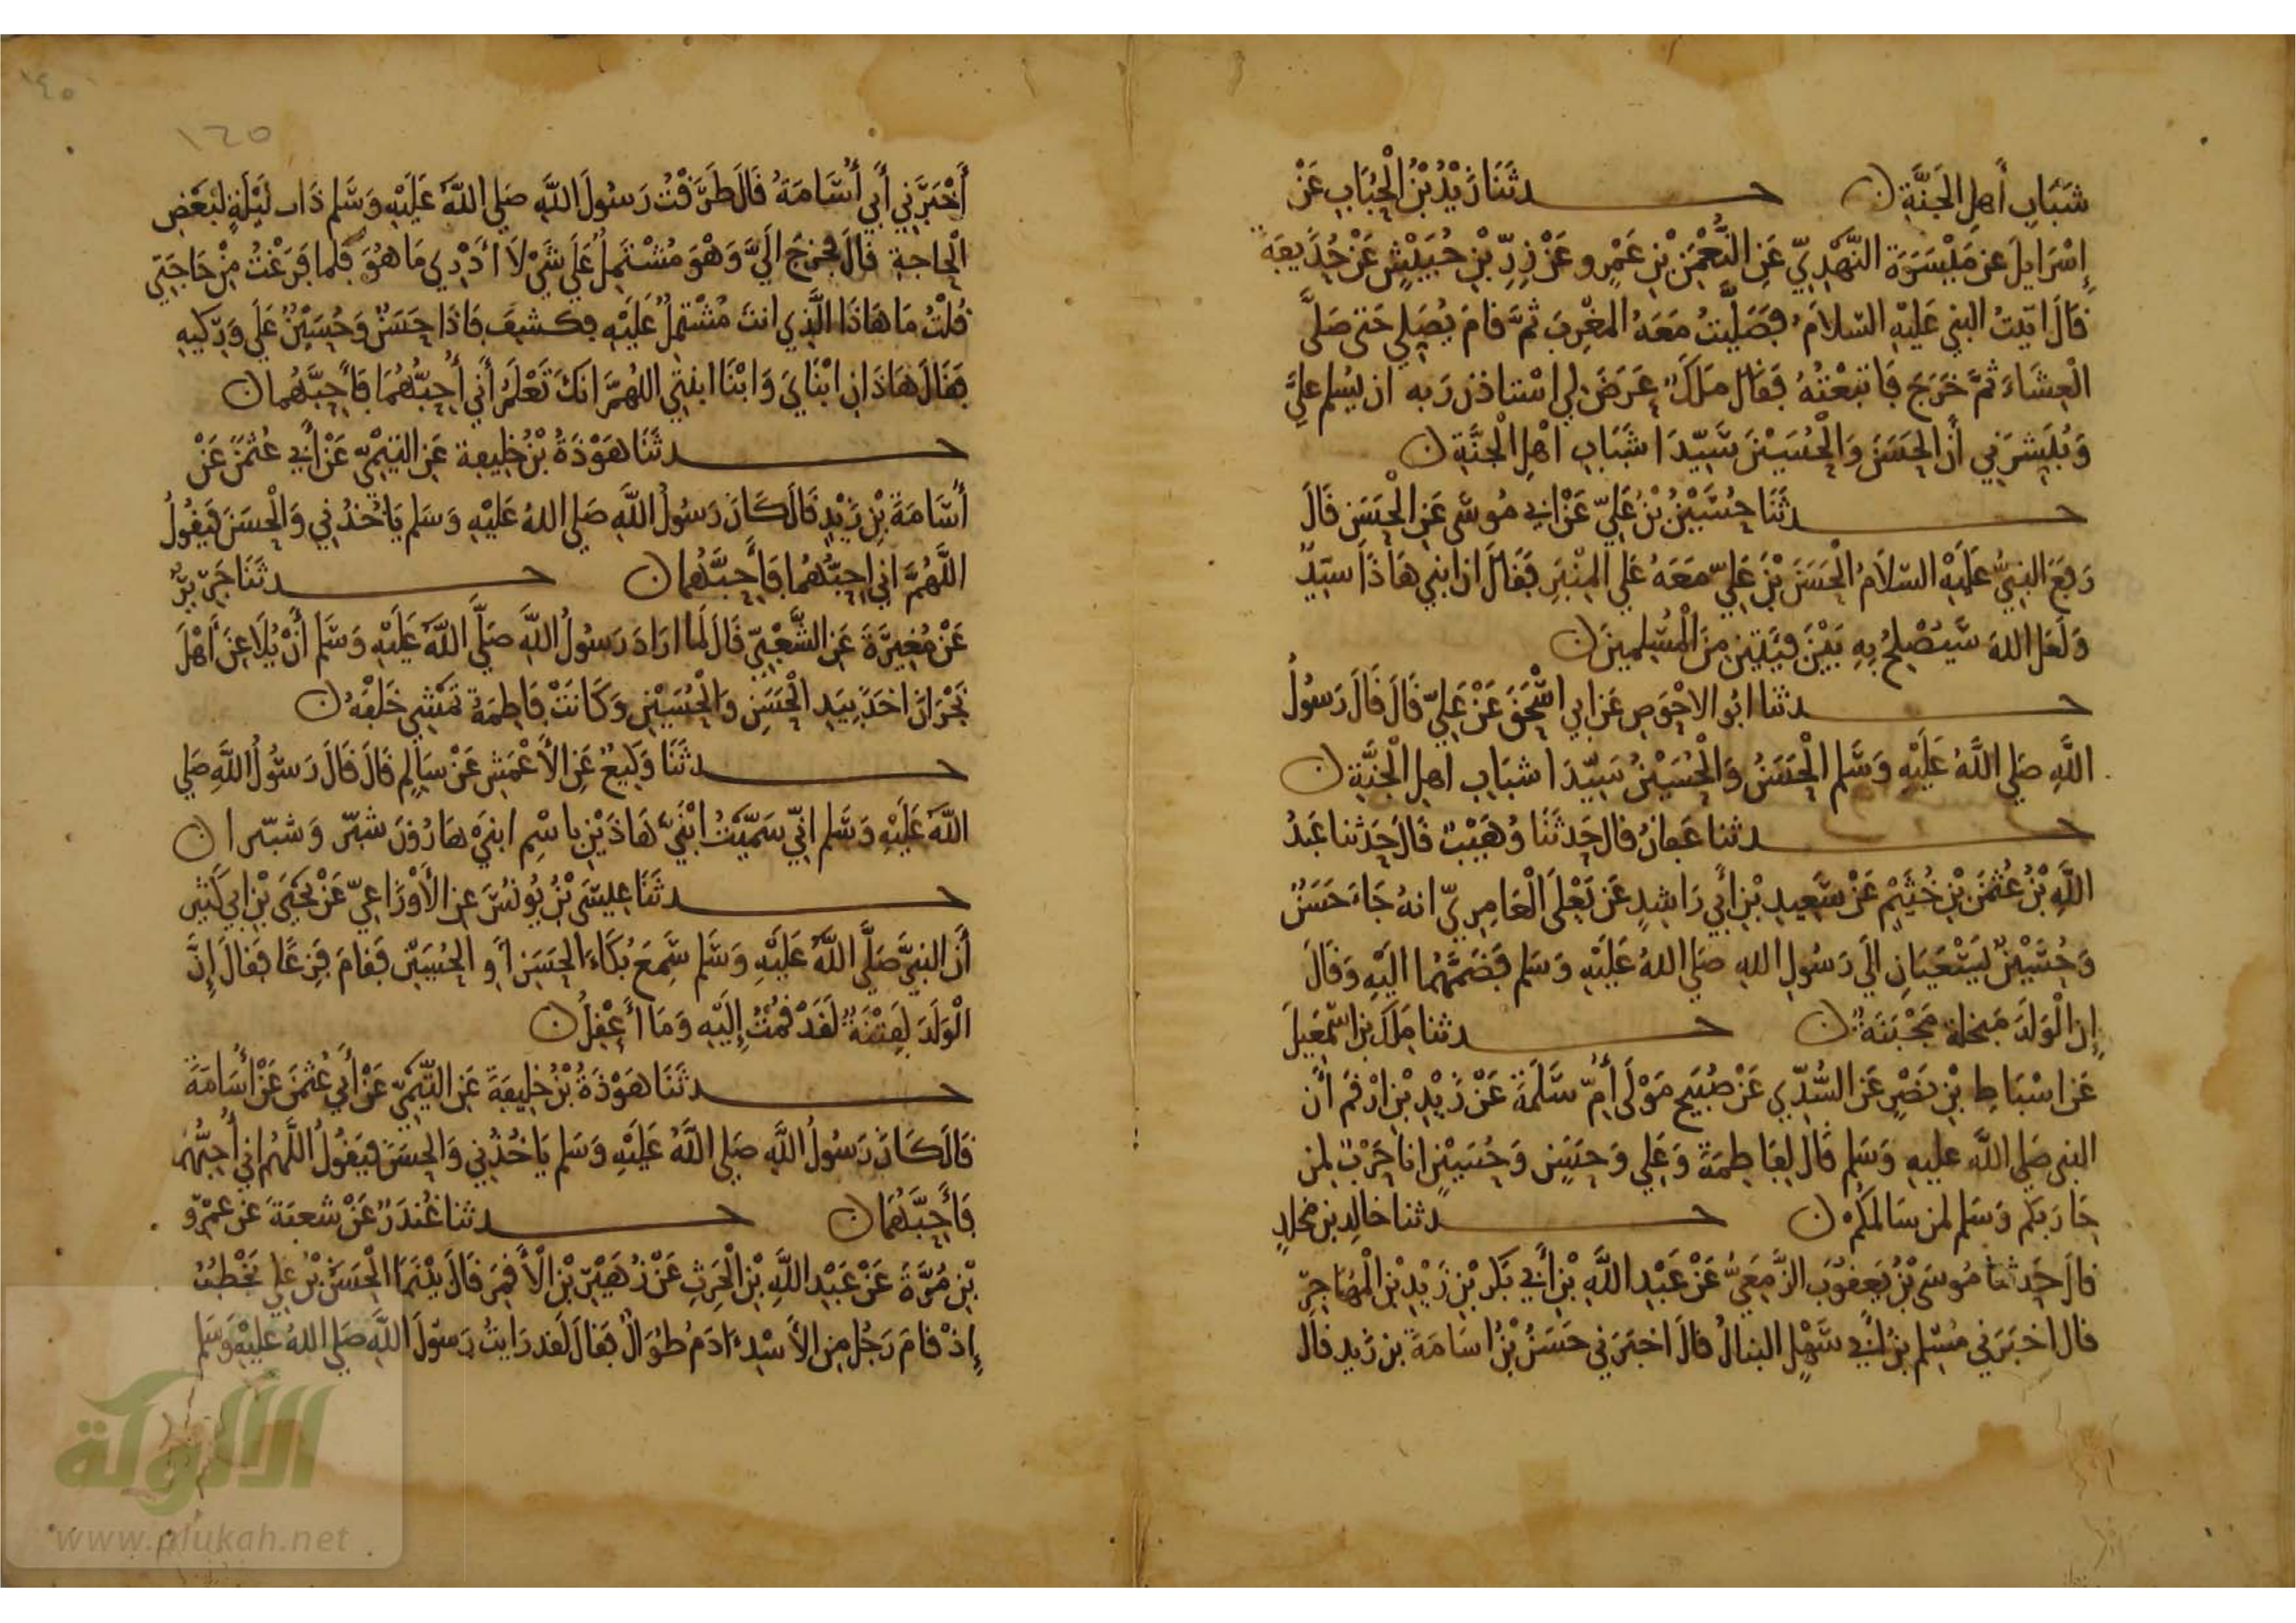 شَبَابِ أَهلِ الجَنَّةِ ن حدثَنَا زَيْدُ بْنُ الْحُبَابِ عَنْ
إِسْرَايلَ عن مَيْسَرَةَ النَّهْدِيِّ عَنِ النُّعْمَنِ بْنِ عَمْرٍو عَنْ زِرِّ بْنِ حُبَيْشٍ عَنْ حُذَيفَةَ
قَالَ اتيتُ النبي عَلَيْهِ السَّلامُ فَصَلَّيْتُ مَعَهُ المَغْرِبَ ثمَّ قامَ يُصَلِي حَتى صَلَّى
الْعِشَاءَ ثمَّ خَرَجَ فَاتبعْتُهُ فقال مَلَكٌ عَرَضَ لِي اسْتاذن رَبه ان يسَلم عليَّ
وَيُبَشِّرَنِي أن الحَسَنَ وَالْحُسَيْنَ سَيِّدَا شَبَابِ اهْلِ الْجنَّةِ ن
حدثَنَا حُسَيْنُ بْنُ عَلِيّ عَنْ ابي مُوسَى عَنِ الْحَسَنِ قَالَ
رَفعَ النبيُّ عَلَيْهِ السَّلاَمُ الْحَسَنَ بْنَ عَلِيّ مَعَهُ عَلَي المِنْبَرِ فقَالَ ان ابني هَاذَا سَيّدٌ
وَلعَل اللهَ سَيُصْلِحُ بِهِ بَيْنَ فِيَتَيْنِ مِنَ الْمُسْلِمِينَ ن
حدثنا ابُو الاحْوَصِ عَن ابِي اسْحَقَ عَنْ عَلِيّ قَالَ قَالَ رَسُولُ
اللَّهِ صَلى اللَّهُ عَلَيْهِ وَسَّلم الْحَسَنُ وَالْحُسَيْنُ سَيِّدَا شبَابِ اهلِ الْجَنَّةِ ن
حدثنا عَفانُ قال حَدثَنَا وُهَيْبٌ قَالَ حَدثنا عَبْدُ
اللَّهِ بْنُ عُثمَنَ بْنِ خُثَيْمٍ عَنْ سَعِيدِ بْنِ أَبي رَاشِدٍ عَن يَعْلَى الْعَامِرِيّ انهُ جَاءَ حَسَنٌ
وَحُسَيْنٌ يَسْعَيَانِ الَى رَسُولِ اللهِ صَلَي اللهُ عَلَيْهِ وَسَلم فضَمَّهُما الَيْهِ وَقَالَ
إِن الْوَلَدَ مَبخلة مَجْبَنَةٌ ن حدثنا مَلَكُ بن اسْمَعِيلَ
عَن اسْبَاطِ بْنِ نَصْرٍ عَن السُّدِّي عَنْ صُبَيحٍ مَوْلَى أُمِّ سَلَمَةَ عَنْ زَيْدِ بْنِ ارْقمَ أنَّ
النبي صَلى اللَّه عليهِ وَسَلم قَالَ لِفاطِمَةَ وَعَلِي وَحَسَنٍ وَحُسَيْنٍ انا حَرْبٌ لمن
حَارَبَكم وَسَلم لمن سَالمَكُم ن حدثنا خالِد بن مخلدٍ
قالَ حَدثنا مُوسَى بْنُ يَعقوُبَ الزَّمَعِيُّ عَنْ عَبْدِ اللَّهِ بْنِ أَبي بَكر بْنِ زَيْدِ بْنِ الْمُهَاجِرِ
قال اخبَرَني مُسْلم بنُ أَبي سَهْلٍ النبالُ قَالَ اخبَرَني حَسَنُ بْنُ اسَامَةَ بن زَيد قالَ
١٤٥
١٦٥
أَخْبَرَنِي أَبي أُسَامَةُ قَالَ طَرَقْتُ رَسُولَ اللَّهِ صَلى اللَّهُ عَلَيْهِ وَسَّلم ذَات لَيْلَةٍ لبَعْضِ
الْحاجةِ قالَ فخرَجَ الَيَّ وَهْوَ مُشْتَمِلٌ عَلَي شَيْ لاَ ادْرِي مَا هُوَ فلما فَرَغْتُ مِنْ حَاجَتِي
قُلْتُ مَا هَاذَا الَّذِي انتَ مُشْتمِلٌ عَلَيْهِ فكَشفَ فَاذَا حَسَنٌ وَحُسَيْنٌ عَلَي وَرِكيهِ
فقَالَ هَاذَانِ ابْنَايَ وَابْنَا ابنتِي اللهُمَّ انكَ تَعْلَمُ أَنِي أُحِبُّهُمَا فَأَحِبَّهُما ن
حدثَنَا هَوْذَةُ بْنُ خلِيفة عَنِ التيْمِيّ عَنْ أَبي عُثمَنَ عَنْ
أُسَامَةَ بْنِ زَيْدٍ قَالَ كَانَ رَسُولُ اللَّهِ صَلي اللهُ عَلَيْهِ وَسَلم يَاخُذُنِي وَالْحسَنَ فيَقُولُ
اللَّهُمَّ انِي احِبُّهُمَا فَأَحِبَّهُمَا ن حدثَنَا جَرِيرٌ
عَنْ مُغِيرَةَ عَن الشَّعْبِيّ قَالَ لَما ارَادَ رَسُولُ اللَّهِ صَلَّى اللَّهُ عَلَيْهِ وَسَّلمَ أَنْ يُلاَعِنَ أَهْلَ
نَجْرَانَ اخَذَ بِيَدِ الْحَسَنِ وَالْحُسَيْنِ وَكَانَتْ فَاطِمَةُ تمْشِي خَلْفَهُ ن
حدثَنَا وَكِيعٌ عَنِ الأَعْمَشِ عَنْ سَالِمٍ قَالَ قَالَ رَسُولُ اللَّهِ صَلي
اللَّهُ عَلَيْهِ وَسَّلم انِّي سَمَّيْتُ ابْنَيَّ هَاذَيْنِ بِاسْمِ ابنَيْ هَارُونَ شبّر وَشبّيرا ن
حدثَنَا عِيسَى بْنُ يُونُسَ عن الأَوْزَاعِيّ عَنْ يَحْيَى بْنِ ابي كَثير
أَنَّ النبيَّ صَلَّى اللَّهُ عَلَيْهِ وَسَّلم سَّمِعَ بُكَاءَ الحَسَنِ أَو الحُسَيْنِ فقامَ فَزِعًا فقَالَ إِنَّ
الْوَلَدَ لفِتْنَةٌ لَقَدْ قُمْتُ إِلَيْهِ وَمَا أَعْقِلُ ن
حدثَنَا هَوْذَةُ بْنُ خلِيفَةَ عَنِ التَّيْمِيّ عَنْ أَبي عُثمَنَ عَنْ أُسَامَةَ
قَالَ كَانَ رَسُولُ اللَّهِ صَلي اللَّهُ عَلَيْهِ وَسَلم يَاخُذُنِي وَالحسَنَ فيَقُولُ اللَّهُم اني أُحِبُّهُمَا
فَأَحِبَّهُمَا ن حدثنا غُندَرٌ عَنْ شعبَةَ عَن عَمْرِو
بْنِ مُرَّةَ عَنْ عَبْدِ اللَّهِ بْنِ الْحَرِثِ عَنْ زُهَيْرِ بْنِ الْأَقمَرِ قَالَ بَيْنَمَا الْحَسَنُ بْنُ علي يَخْطُبُ
إِذْ قامَ رَجُل مِن الأَسْدِ ءَادَمُ طُوَالٌ فقالَ لَقد رَايتُ رَسُولَ اللَّهِ صَلي اللهُ عَلَيْهِ وَسَلم
الألوكة
www.alukah.net